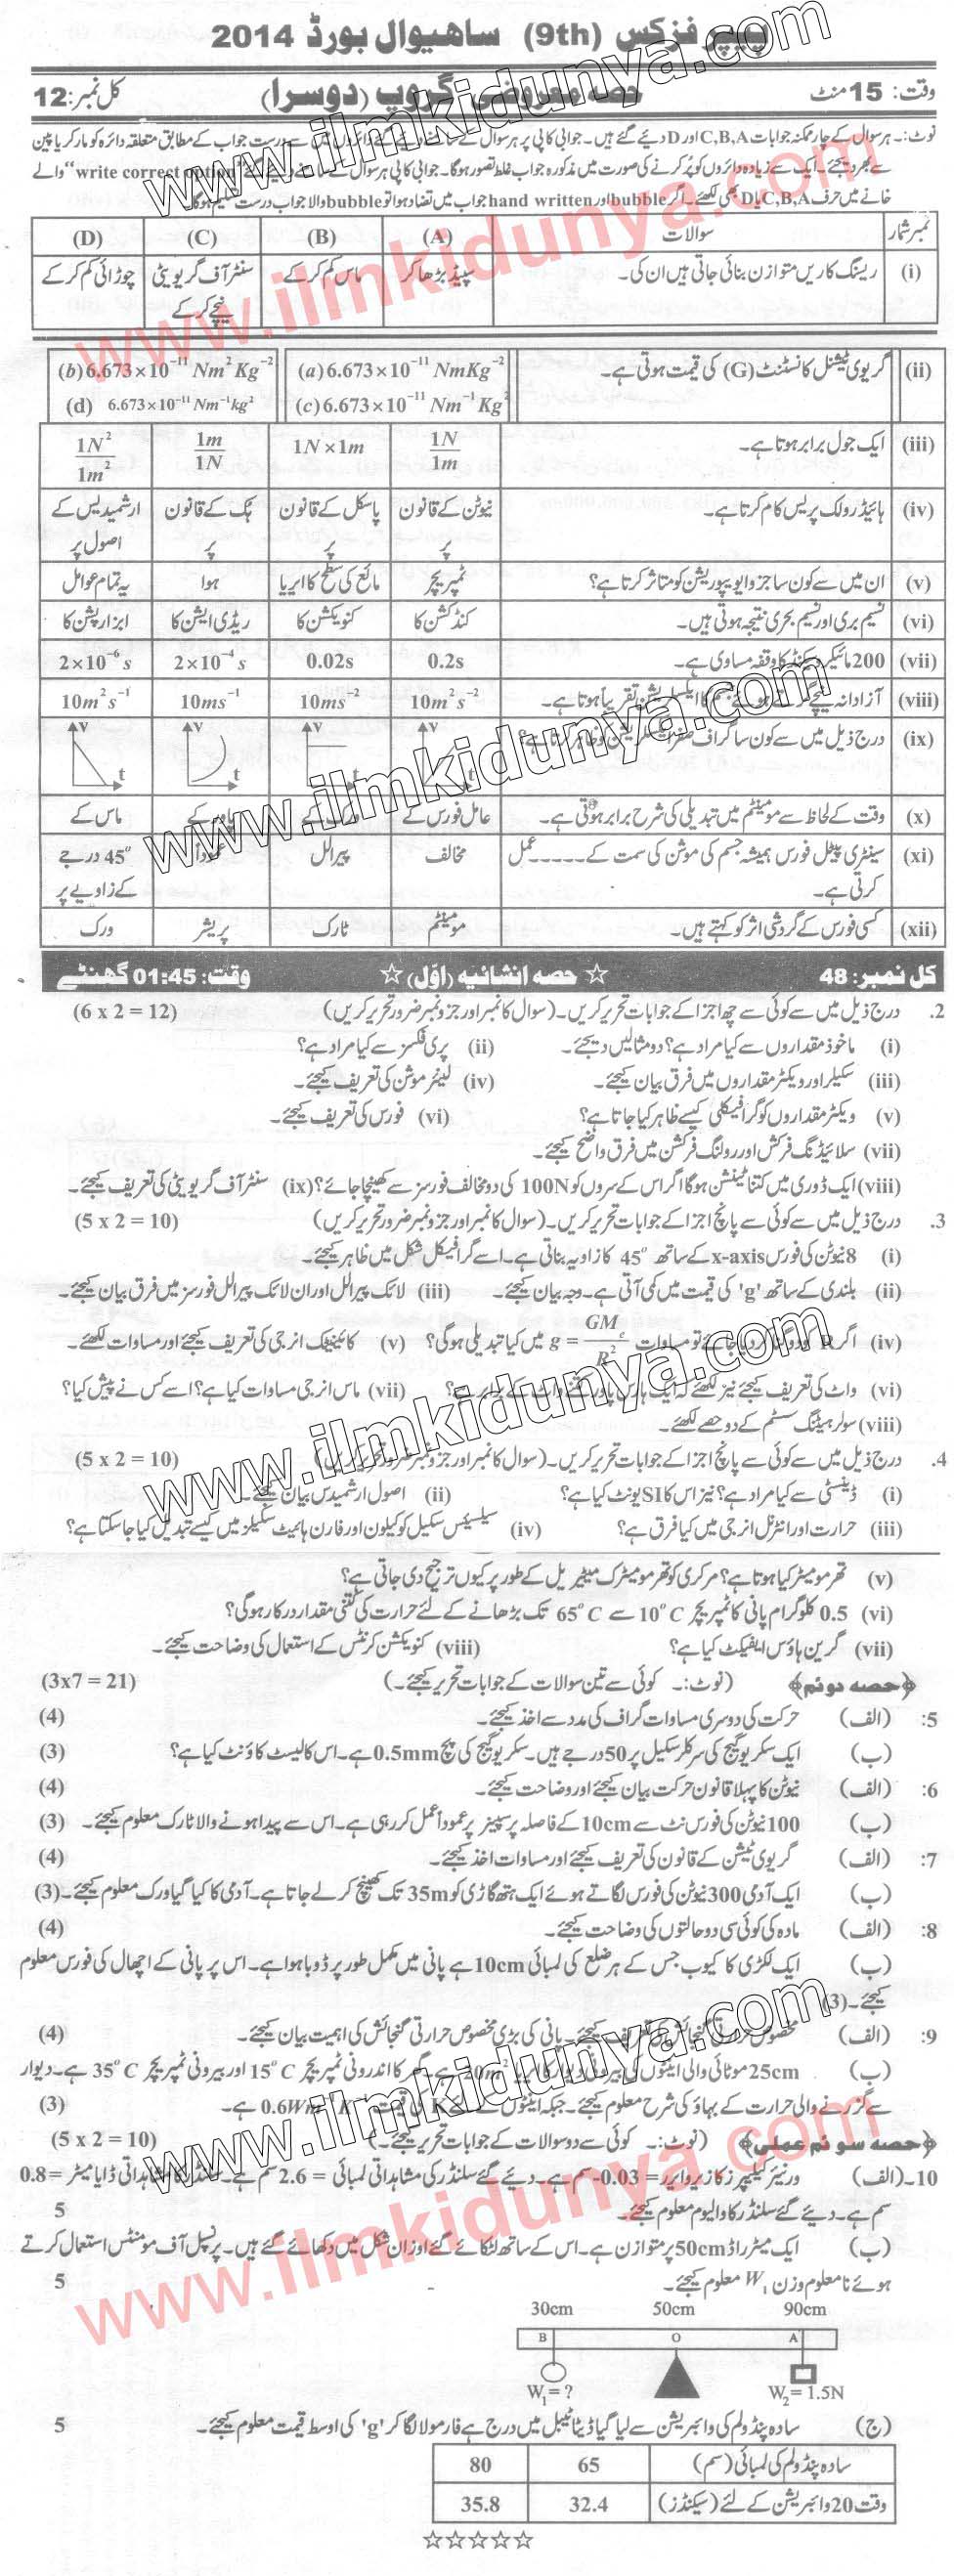 پیپر فزکس (9th) ساھیوال بورڈ 2014
وقت: 15 منٹ حصہ معروضی گروپ (دوسرا) کل نمبر: 12
نوٹ:۔ ہر سوال کے چار ممکنہ جوابات C,B,A اور D دیے گئے ہیں۔ جوابی کاپی پر ہر سوال کے سامنے دیے گئے دائروں میں سے درست جواب کے مطابق متعلقہ دائرہ کو مارکر یا پین
سے بھر دیجئے۔ ایک سے زیادہ دائروں کو پُر کرنے کی صورت میں مذکورہ جواب غلط تصور ہوگا۔ جوابی کاپی پر ہر سوال کے سامنے دیے گئے "write correct option" والے
خانے میں حرف C,B,A یا D بھی لکھئے۔ اگر bubble اور hand written جواب میں تضاد ہوا تو bubble والا جواب درست تسلیم ہوگا۔
نمبر شمار سوالات (A) (B) (C) (D)
(i) ریسنگ کاریں متوازن بنائی جاتی ہیں ان کی۔ سپیڈ بڑھا کر ماس کم کر کے سنٹر آف گریویٹی نیچے کر کے چوڑائی کم کر کے
(ii) گریوی ٹیشنل کانسٹنٹ (G) کی قیمت ہوتی ہے۔ (a) 6.673×10⁻¹¹ NmKg⁻² (b) 6.673×10⁻¹¹ Nm²Kg⁻²
(c) 6.673×10⁻¹¹ Nm⁻¹Kg² (d) 6.673×10⁻¹¹ Nm⁻¹kg²
(iii) ایک جول برابر ہوتا ہے۔ 1N/1m 1N×1m 1m/1N 1N²/1m²
(iv) ہائیڈرولک پریس کام کرتا ہے۔ نیوٹن کے قانون پر پاسکل کے قانون پر ہک کے قانون پر ارشمیدس کے اصول پر
(v) ان میں سے کون سا جزو ایویپوریشن کو متاثر کرتا ہے؟ ٹمپریچر مائع کی سطح کا ایریا ہوا یہ تمام عوامل
(vi) نسیم بری اور نسیم بحری نتیجہ ہوتی ہیں۔ کنڈکشن کا کنویکشن کا ریڈی ایشن کا ابزارپشن کا
(vii) 200 مائیکرو سیکنڈ کا وقفہ مساوی ہے۔ 0.2s 0.02s 2×10⁻⁴s 2×10⁻⁶s
(viii) آزادانہ نیچے گرتے ہوئے جسم کا ایکسلریشن تقریباً ہوتا ہے۔ 10m²s⁻² 10ms⁻² 10ms⁻¹ 10m²s⁻¹
(ix) درج ذیل میں سے کون سا گراف صفر ایکسلریشن کو ظاہر کرتا ہے؟ v t v t v t v t
(x) وقت کے لحاظ سے مومینٹم میں تبدیلی کی شرح برابر ہوتی ہے۔ عامل فورس کے ورک کے پاور کے ماس کے
(xi) سینٹری پیٹل فورس ہمیشہ جسم کی موشن کی سمت کے ۔۔۔۔۔ عمل کرتی ہے۔ مخالف پیرالل عموداً 45° درجے کے زاویے پر
(xii) کسی فورس کے گردشی اثر کو کہتے ہیں۔ مومینٹم ٹارک پریشر ورک
کل نمبر: 48 ☆ حصہ انشائیہ (اوّل) ☆ وقت: 01:45 گھنٹے
2. درج ذیل میں سے کوئی سے چھ اجزا کے جوابات تحریر کریں۔ (سوال کا نمبر اور جزو نمبر ضرور تحریر کریں) (6 x 2 = 12)
(i) ماخوذ مقداروں سے کیا مراد ہے؟ دو مثالیں دیجئے۔ (ii) پری فکسز سے کیا مراد ہے؟
(iii) سکیلر اور ویکٹر مقداروں میں فرق بیان کیجئے۔ (iv) لینئر موشن کی تعریف کیجئے۔
(v) ویکٹر مقداروں کو گرافیکلی کیسے ظاہر کیا جاتا ہے؟ (vi) فورس کی تعریف کیجئے۔
(vii) سلائیڈنگ فرکشن اور رولنگ فرکشن میں فرق واضح کیجئے۔
(viii) ایک ڈوری میں کتنا ٹینشن ہوگا اگر اس کے سروں کو 100N کی دو مخالف فورسز سے کھینچا جائے؟ (ix) سنٹر آف گریویٹی کی تعریف کیجئے۔
3. درج ذیل میں سے کوئی سے پانچ اجزا کے جوابات تحریر کریں۔ (سوال کا نمبر اور جزو نمبر ضرور تحریر کریں) (5 x 2 = 10)
(i) 8 نیوٹن کی فورس x-axis کے ساتھ 45° کا زاویہ بناتی ہے۔ اسے گرافیکل شکل میں ظاہر کیجئے۔
(ii) بلندی کے ساتھ 'g' کی قیمت میں کمی آتی ہے۔ وجہ بیان کیجئے۔ (iii) لائک پیرالل اور ان لائک پیرالل فورسز میں فرق بیان کیجئے۔
(iv) اگر R کو دوگنا کر دیا جائے تو مساوات g = GMe/R² میں کیا تبدیلی ہوگی؟ (v) کائنیٹک انرجی کی تعریف کیجئے اور مساوات لکھئے۔
(vi) واٹ کی تعریف کیجئے نیز لکھئے کہ ایک ہارس پاور کتنے واٹ کے برابر ہے؟ (vii) ماس انرجی مساوات کیا ہے؟ اسے کس نے پیش کیا؟
(viii) سولر ہیٹنگ سسٹم کے دو حصے لکھئے۔
4. درج ذیل میں سے کوئی سے پانچ اجزا کے جوابات تحریر کریں۔ (سوال کا نمبر اور جزو نمبر ضرور تحریر کریں) (5 x 2 = 10)
(i) ڈینسٹی سے کیا مراد ہے؟ نیز اس کا SI یونٹ کیا ہے؟ (ii) اصول ارشمیدس بیان کیجئے۔
(iii) حرارت اور انٹرنل انرجی میں کیا فرق ہے؟ (iv) سیلسیئس سکیل کو کیلون اور فارن ہائیٹ سکیلز میں کیسے تبدیل کیا جا سکتا ہے؟
(v) تھرمومیٹر کیا ہوتا ہے؟ مرکری کو تھرمومیٹرک میٹیریل کے طور پر کیوں ترجیح دی جاتی ہے؟
(vi) 0.5 کلوگرام پانی کا ٹمپریچر 10°C سے 65°C تک بڑھانے کے لئے حرارت کی کتنی مقدار درکار ہوگی؟
(vii) گرین ہاؤس ایفیکٹ کیا ہے؟ (viii) کنویکشن کرنٹس کے استعمال کی وضاحت کیجئے۔
﴿حصہ دوئم﴾ (نوٹ:۔ کوئی سے تین سوالات کے جوابات تحریر کیجئے۔) (3x7 = 21)
5: (الف) حرکت کی دوسری مساوات گراف کی مدد سے اخذ کیجئے۔ (4)
(ب) ایک سکریو گیج کی سرکلر سکیل پر 50 درجے ہیں۔ سکریو گیج کی پچ 0.5mm ہے۔ اس کا لیسٹ کاؤنٹ کیا ہے؟ (3)
6: (الف) نیوٹن کا پہلا قانون حرکت بیان کیجئے اور وضاحت کیجئے۔ (4)
(ب) 100 نیوٹن کی فورس نٹ سے 10cm کے فاصلہ پر سپینر پر عموداً عمل کر رہی ہے۔ اس سے پیدا ہونے والا ٹارک معلوم کیجئے۔ (3)
7: (الف) گریوی ٹیشن کے قانون کی تعریف کیجئے اور مساوات اخذ کیجئے۔ (4)
(ب) ایک آدمی 300 نیوٹن کی فورس لگاتے ہوئے ایک ہتھ گاڑی کو 35m تک کھینچ کر لے جاتا ہے۔ آدمی کا کیا گیا ورک معلوم کیجئے۔ (3)
8: (الف) مادہ کی کوئی سی دو حالتوں کی وضاحت کیجئے۔ (4)
(ب) ایک لکڑی کا کیوب جس کے ہر ضلع کی لمبائی 10cm ہے پانی میں مکمل طور پر ڈوبا ہوا ہے۔ اس پر پانی کے اچھال کی فورس معلوم
کیجئے۔ (3)
9: (الف) مخصوص حرارتی گنجائش کی تعریف کیجئے۔ پانی کی بڑی مخصوص حرارتی گنجائش کی اہمیت بیان کیجئے۔ (4)
(ب) 25cm موٹائی والی اینٹوں کی بیرونی دیوار کا ایریا 20m² ہے۔ گھر کا اندرونی ٹمپریچر 15°C اور بیرونی ٹمپریچر 35°C ہے۔ دیوار
سے گزرنے والی حرارت کے بہاؤ کی شرح معلوم کیجئے۔ جبکہ اینٹوں کے لئے K کی قیمت 0.6Wm⁻¹K⁻¹ ہے۔ (3)
﴿حصہ سوئم عملی﴾ (نوٹ:۔ کوئی سے دو سوالات کے جوابات تحریر کیجئے۔) (5 x 2 = 10)
10۔ (الف) ورنیئر کیلیپرز کا زیرو ایرر = 0.03- سم ہے۔ دیئے گئے سلنڈر کی مشاہداتی لمبائی = 2.6 سم ہے۔ سلنڈر کا مشاہداتی ڈایا میٹر = 0.8
سم ہے۔ دیئے گئے سلنڈر کا والیوم معلوم کیجئے۔ 5
(ب) ایک میٹر راڈ 50cm پر متوازن ہے۔ اس کے ساتھ لٹکائے گئے اوزان شکل میں دکھائے گئے ہیں۔ پرنسپل آف مومنٹس استعمال کرتے
ہوئے نامعلوم وزن W₁ معلوم کیجئے۔ 5
30cm 50cm 90cm
B O A
W₁ = ? W₂ = 1.5N
(ج) سادہ پنڈولم کی وائبریشن سے لیا گیا ڈیٹا ٹیبل میں درج ہے فارمولا لگا کر 'g' کی اوسط قیمت معلوم کیجئے۔ 5
سادہ پنڈولم کی لمبائی (سم) 65 80
وقت 20 وائبریشن کے لئے (سیکنڈز) 32.4 35.8
☆☆☆☆☆
www.ilmkidunya.com
www.ilmkidunya.com
www.ilmkidunya.com
www.ilmkidunya.com
www.ilmkidunya.com
www.ilmkidunya.com